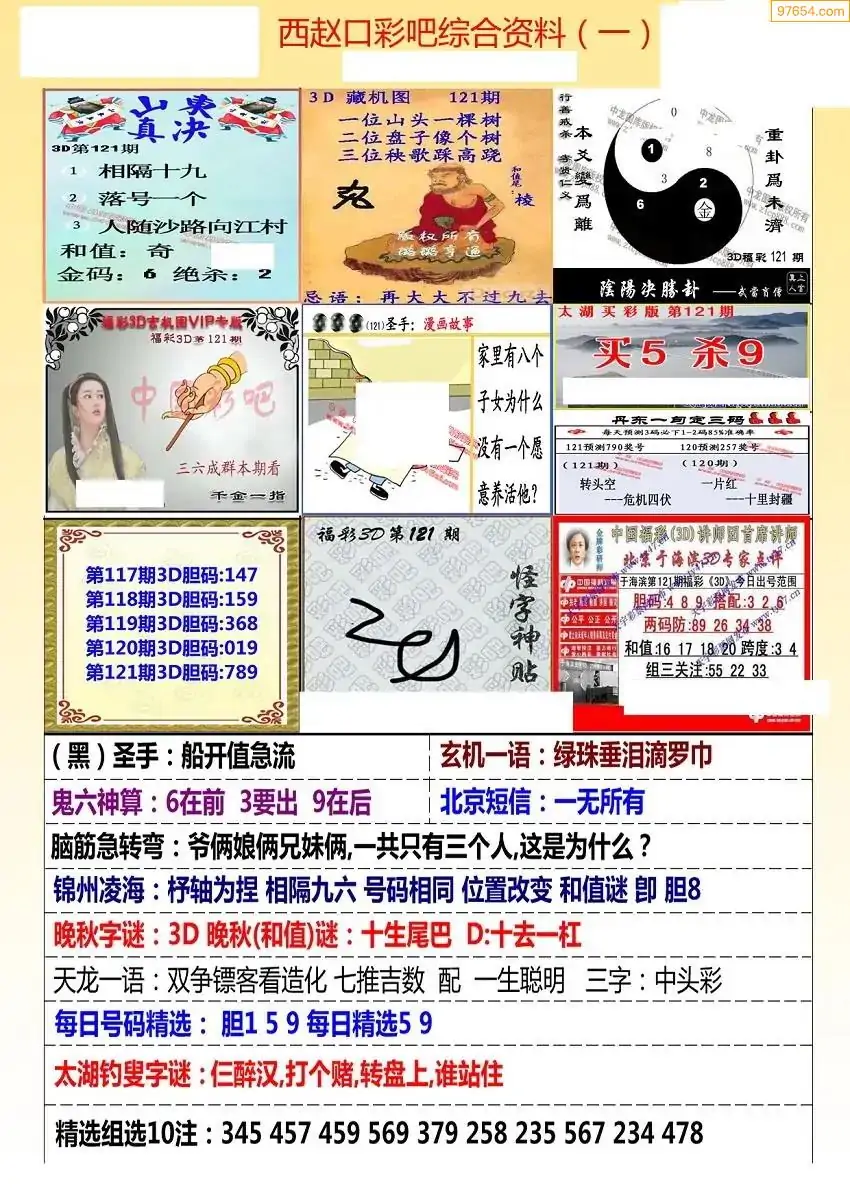 97654.com
西赵口彩吧综合资料（一）
山东
真决
3D第121期
1 相隔十九
2 落号一个
3 人随沙路向江村
和值：奇
金码：6 绝杀：2
3D 藏机图 121期
一位山头一棵树
二位盘子像个树
三位秧歌踩高跷
和值尾：棱
版权所有
忌语：再大大不过九去
行善戒杀 孝贤仁义
本爻變爲離
0
1
8
3
2
6
金
重卦爲未濟
3D福彩 121 期
陰陽决勝卦 ——武當肖僧
福彩3D玄机图VIP专版
福彩3D第 121 期
中国彩吧
三六成群本期看
千金一指
(121)圣手：漫画故事
家里有八个
子女为什么
没有一个愿
意养活他?
太湖买彩版 第121期
买5 杀9
丹东一句定三码
每天预测3码必下1-2码85%准确率
121预测790奖号 120预测257奖号
（121期） （120期）
转头空 一片红
---危机四伏 ---十里封疆
第117期3D胆码:147
第118期3D胆码:159
第119期3D胆码:368
第120期3D胆码:019
第121期3D胆码:789
福彩3D第 121 期
怪字神贴
中国福彩(3D)讲师团首席讲师
北京于海滨3D专家点评
金牌彩研师
于海滨第121期福彩《3D》今日出号范围
胆码:4 8 9 搭配:3 2 6
两码防:89 26 34 38
和值:16 17 18 20 跨度:3 4
组三关注:55 22 33
公平 公正 公开
(黑)圣手：船开值急流
玄机一语：绿珠垂泪滴罗巾
鬼六神算：6在前 3要出 9在后
北京短信：一无所有
脑筋急转弯：爷俩娘俩兄妹俩,一共只有三个人,这是为什么？
锦州凌海：杼轴为捏 相隔九六 号码相同 位置改变 和值谜 卽 胆8
晚秋字谜：3D 晚秋(和值)谜：十生尾巴 D:十去一杠
天龙一语：双争镖客看造化 七推吉数 配 一生聪明 三字：中头彩
每日号码精选： 胆1 5 9 每日精选5 9
太湖钓叟字谜：仨醉汉,打个赌,转盘上,谁站住
精选组选10注：345 457 459 569 379 258 235 567 234 478